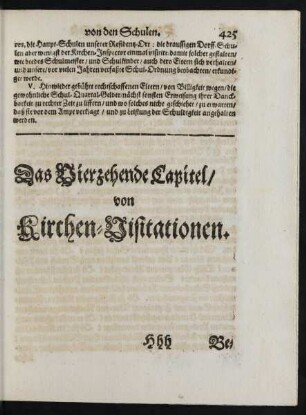 von den Schulen. 425
ren, die Haupt-Schulen unserer Residentz-Ort / die draussigen Dorff-Schu-
len aber vom ist der Kirchen-Inspector einmal visitirt / damit solcher gestalten /
wie beedes Schulmeister / und Schulkinder / auch dero Eltern sich verhalten /
und unsere / vor vielen Jahren verfaßte Schul-Ordnung beobachten / erkundi-
get werde.
V. Hinwieder gebührt rechtschaffenen Eltern / von Billigkeit wegen / die
gewöhnliche Schul-Quartal-Gelder nächst sonsten Erweisung ihrer Danck-
barkeit zu rechter Zeit zu liffern / und wo solches nicht geschiehet / zu erwarten /
daß sie vor dem Ampt verklagt / und zu leistung der Schuldigkeit angehalten
werden.
Das Vierzehende Capitel /
von
Kirchen-Visitationen.
Hhh Be-